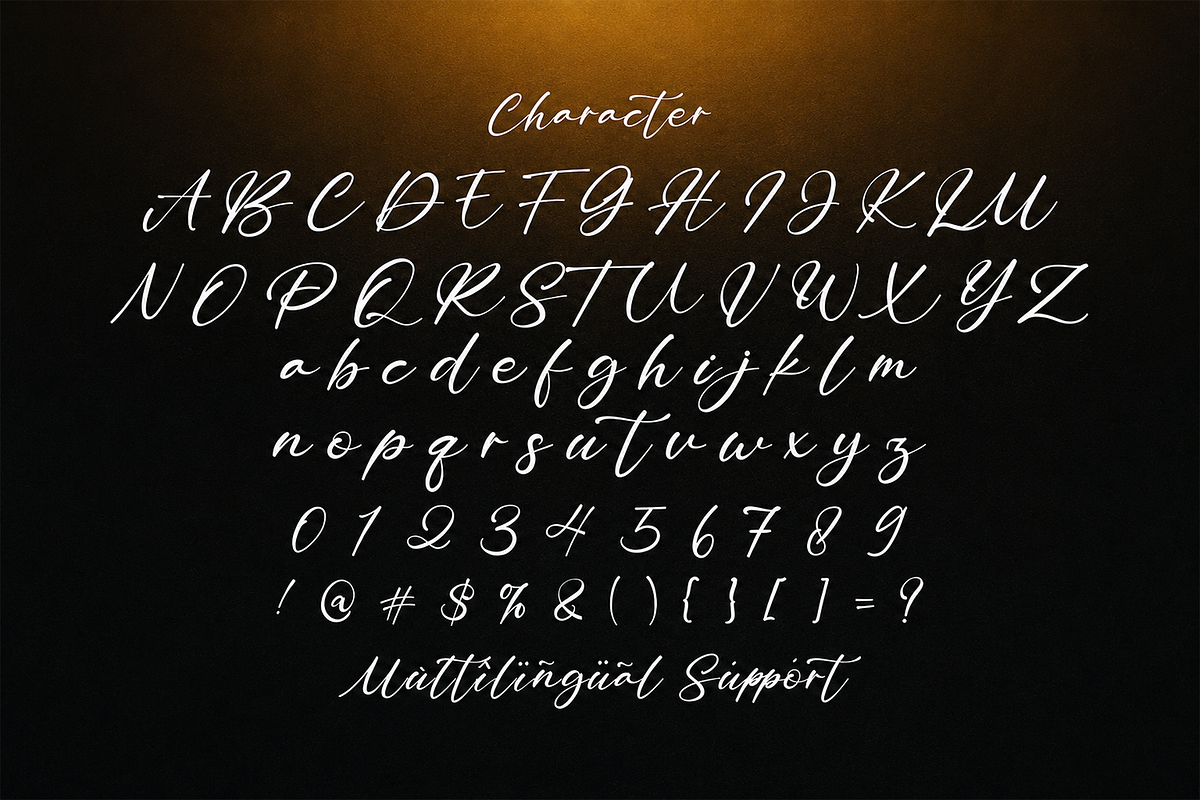 Character
A B C D E F G H I J K L M
N O P Q R S T U V W X Y Z
a b c d e f g h i j k l m
n o p q r s u t v w x y z
0 1 2 3 4 5 6 7 8 9
! @ # $ % & ( ) { } [ ] = ?
Mùttîlïñgüãl Súppórt